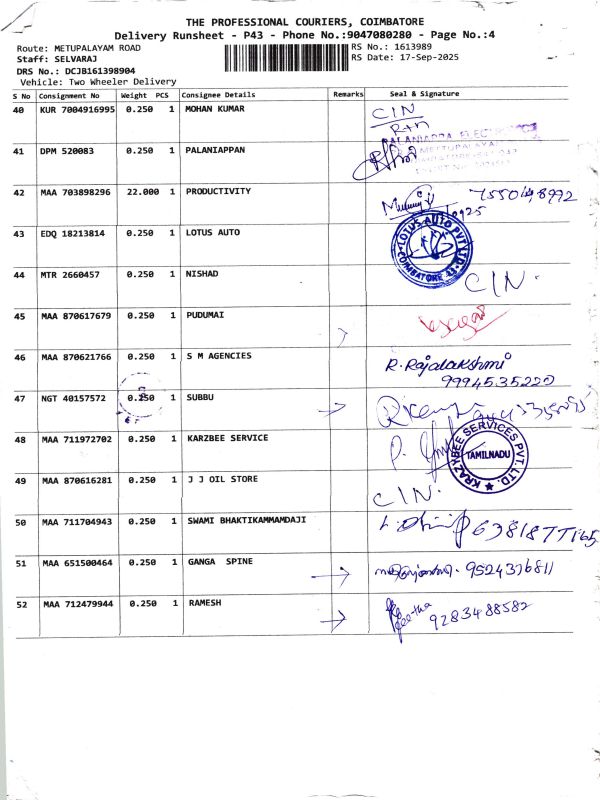 THE PROFESSIONAL COURIERS, COIMBATORE
Delivery Runsheet - P43 - Phone No.:9047080280 - Page No.:4
Route: METUPALAYAM ROAD
RS No.: 1613989
Staff: SELVARAJ
RS Date: 17-Sep-2025
DRS No.: DCJB161398904
Vehicle: Two Wheeler Delivery
S No Consignment No Weight PCS Consignee Details Remarks Seal & Signature
40 KUR 7004916995 0.250 1 MOHAN KUMAR CIN
41 DPM 520083 0.250 1 PALANIAPPAN
42 MAA 703898296 22.000 1 PRODUCTIVITY
43 EDQ 18213814 0.250 1 LOTUS AUTO LOTUS AUTO PVT LTD COIMBATORE
44 MTR 2660457 0.250 1 NISHAD CIN.
45 MAA 870617679 0.250 1 PUDUMAI
46 MAA 870621766 0.250 1 S M AGENCIES R. Rajalakshmi
9994535220
47 NGT 40157572 0.250 1 SUBBU
48 MAA 711972702 0.250 1 KARZBEE SERVICE KRAZYBEE SERVICES PVT. LTD. TAMILNADU
49 MAA 870616281 0.250 1 J J OIL STORE CIN.
50 MAA 711704943 0.250 1 SWAMI BHAKTIKAMMAMDAJI
51 MAA 651500464 0.250 1 GANGA SPINE
52 MAA 712479944 0.250 1 RAMESH Geetha
9283488582